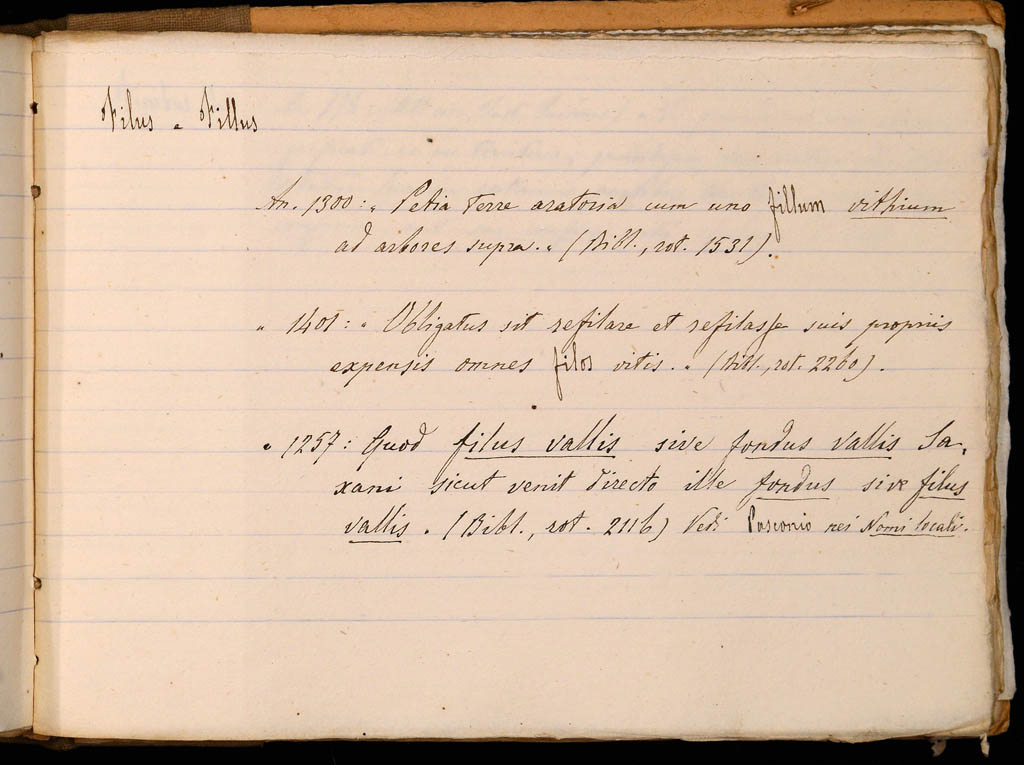 Filus e Fillus
An. 1300: „ Petia terre aratoria cum uno fillum vithium
ad arbores supra. „ (Bibl., rot. 1531).
„ 1401: „ Obligatus sit refilare et refilasse suis propriis
expensis omnes filos vitis. „ (Bibl., rot. 2260).
„ 1257: Quod filus vallis sive fondus vallis Sa,
xani sicut venit directo ille fondus sive filus
vallis. (Bibl., rot. 2116) Vedi Pasconio nei Nomi locali.